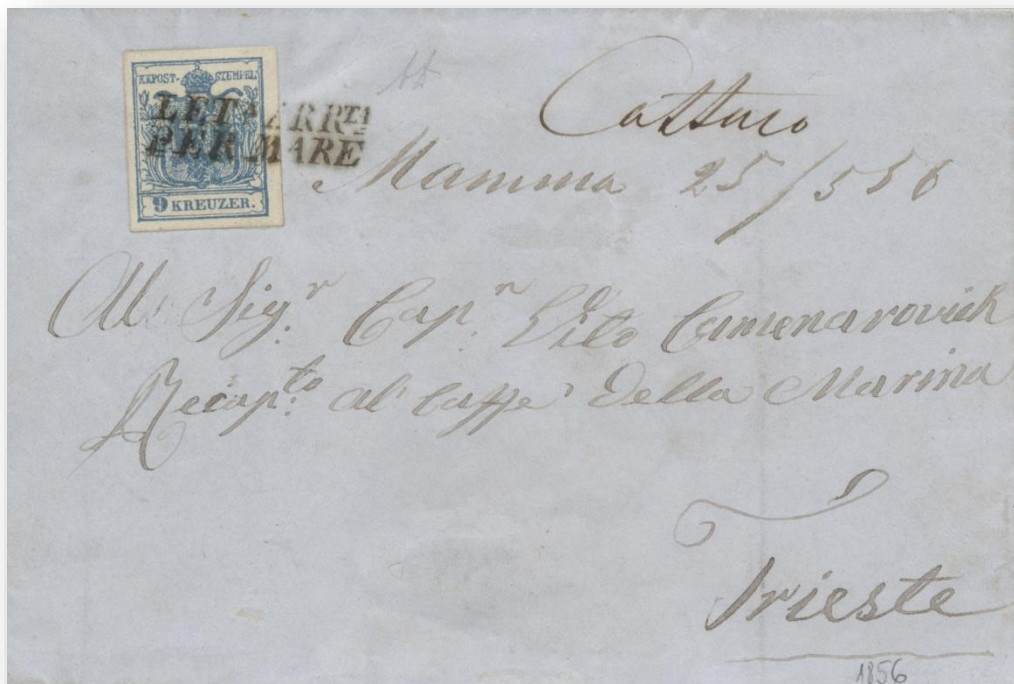 KKPOST-STEMPEL
LETᴬ ARRᵀᴬ
PER MARE
9 KREUZER.
Cattaro
Mamma 25/5 56
Al Sigʳ. Capⁿ. Vito Camenarovich
Recapᵗᵒ. al Caffe' Della Marina
Trieste
1856